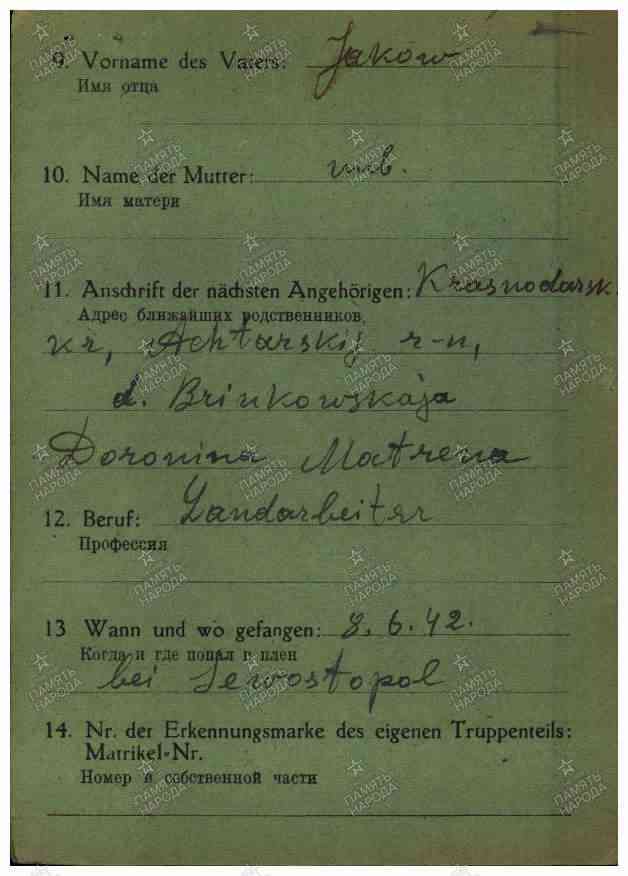 9. Vorname des Vaters: Jakow
Имя отца
10. Name der Mutter: unb.
Имя матери
11. Anschrift der nächsten Angehörigen: Krasnodarsk.
Адрес ближайших родственников
kr, Achtarskij r-n,
d. Brinkowskaja
Doronina Matrena
12. Beruf: Landarbeiter
Профессия
13 Wann und wo gefangen: 8. 6. 42.
Когда и где попал в плен
bei Sewostopol
14. Nr. der Erkennungsmarke des eigenen Truppenteils:
Matrikel-Nr.
Номер в собственной части
ПАМЯТЬ НАРОДА